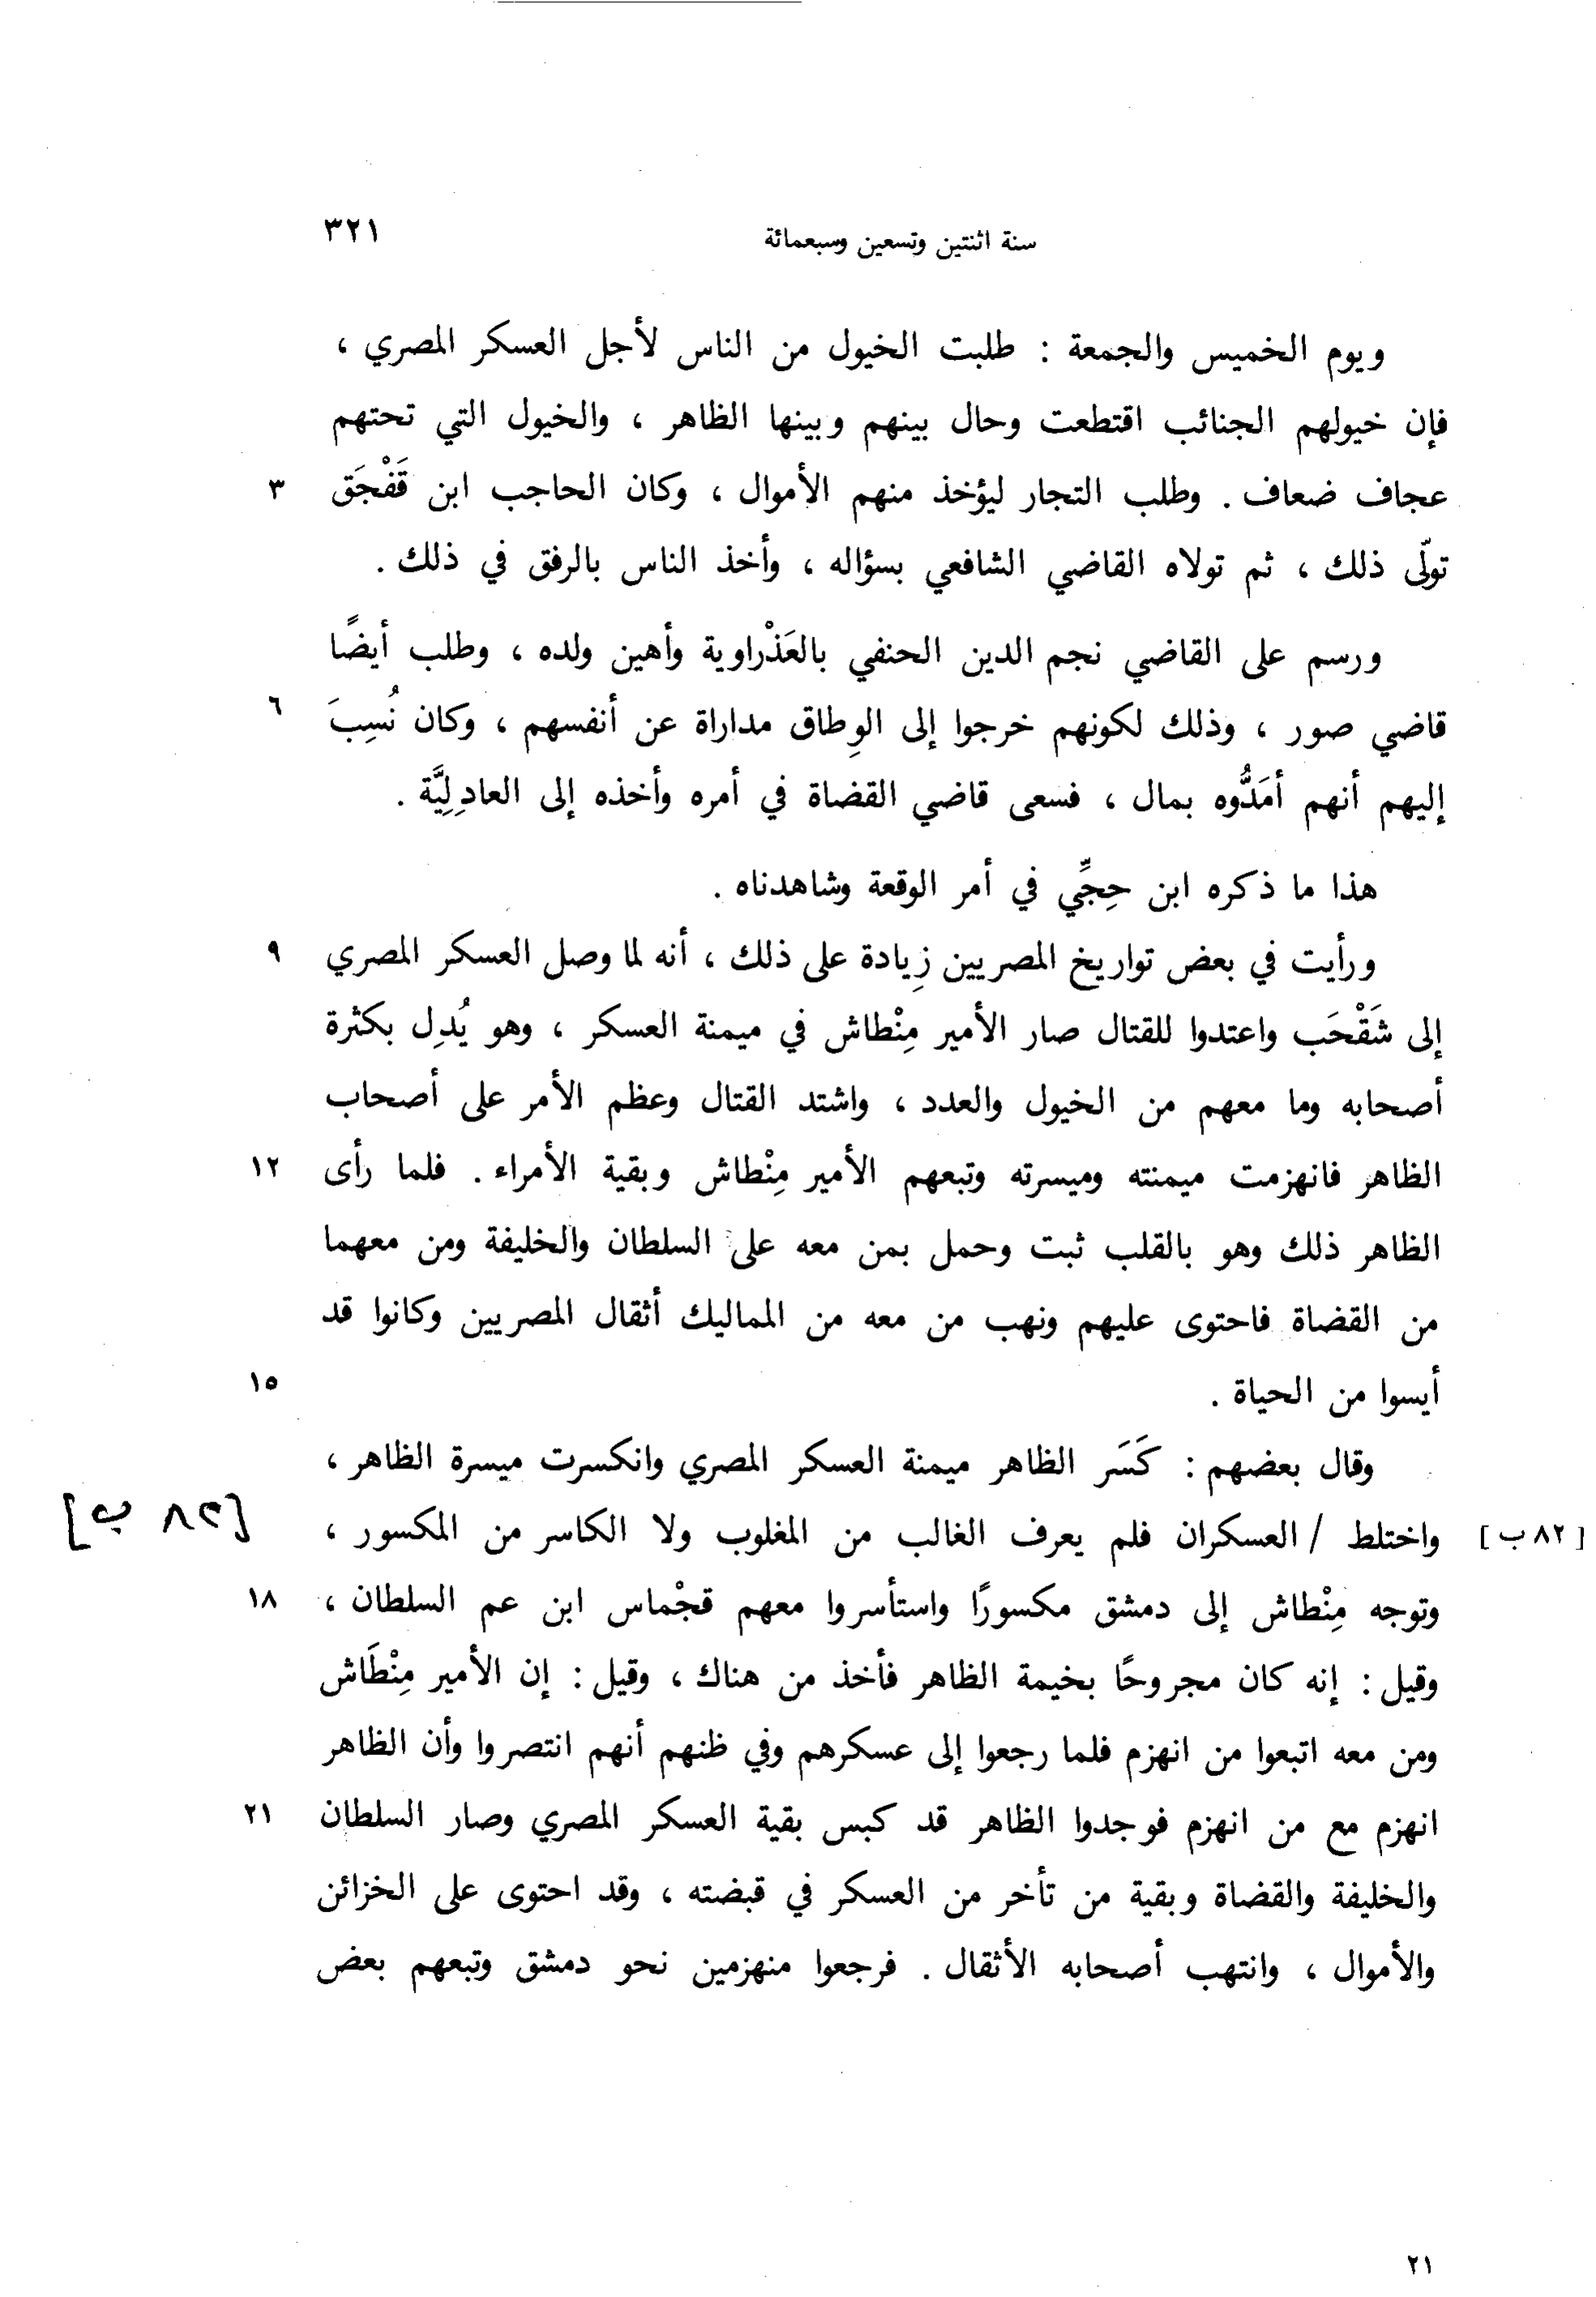 سنة اثنتين وتسعين وسبعمائة ٣٢١
ويوم الخميس والجمعة : طلبت الخيول من الناس لأجل العسكر المصري ،
فإن خيولهم الجنائب اقتطعت وحال بينهم وبينها الظاهر ، والخيول التي تحتهم
عجاف ضعاف . وطلب التجار ليؤخذ منهم الأموال ، وكان الحاجب ابن قَفْجَق ٣
تولّى ذلك ، ثم تولاه القاضي الشافعي بسؤاله ، وأخذ الناس بالرفق في ذلك .
ورسم على القاضي نجم الدين الحنفي بالعَذْراوية وأهين ولده ، وطلب أيضًا
قاضي صور ، وذلك لكونهم خرجوا إلى الوِطاق مداراة عن أنفسهم ، وكان نُسِبَ ٦
إليهم أنهم أمَدُّوه بمال ، فسعى قاضي القضاة في أمره وأخذه إلى العادِلِيَّة .
هذا ما ذكره ابن حِجِّي في أمر الوقعة وشاهدناه .
ورأيت في بعض تواريخ المصريين زِيادة على ذلك ، أنه لما وصل العسكر المصري ٩
إلى شَقْحَب واعتدوا للقتال صار الأمير مِنْطاش في ميمنة العسكر ، وهو يُدِل بكثرة
أصحابه وما معهم من الخيول والعدد ، واشتد القتال وعظم الأمر على أصحاب
الظاهر فانهزمت ميمنته وميسرته وتبعهم الأمير مِنْطاش وبقية الأمراء . فلما رأى ١٢
الظاهر ذلك وهو بالقلب ثبت وحمل بمن معه على السلطان والخليفة ومن معهما
من القضاة فاحتوى عليهم ونهب من معه من المماليك أثقال المصريين وكانوا قد
أيسوا من الحياة . ١٥
وقال بعضهم : كَسَر الظاهر ميمنة العسكر المصري وانكسرت ميسرة الظاهر ،
[٨٢ ب] واختلط / العسكران فلم يعرف الغالب من المغلوب ولا الكاسر من المكسور ، [٨٢ ب]
وتوجه مِنْطاش إلى دمشق مكسورًا واستأسروا معهم قجْماس ابن عم السلطان ، ١٨
وقيل : إنه كان مجروحًا بخيمة الظاهر فأخذ من هناك ، وقيل : إن الأمير مِنْطَاش
ومن معه اتبعوا من انهزم فلما رجعوا إلى عسكرهم وفي ظنهم أنهم انتصروا وأن الظاهر
انهزم مع من انهزم فوجدوا الظاهر قد كبس بقية العسكر المصري وصار السلطان ٢١
والخليفة والقضاة وبقية من تأخر من العسكر في قبضته ، وقد احتوى على الخزائن
والأموال ، وانتهب أصحابه الأثقال . فرجعوا منهزمين نحو دمشق وتبعهم بعض
٢١